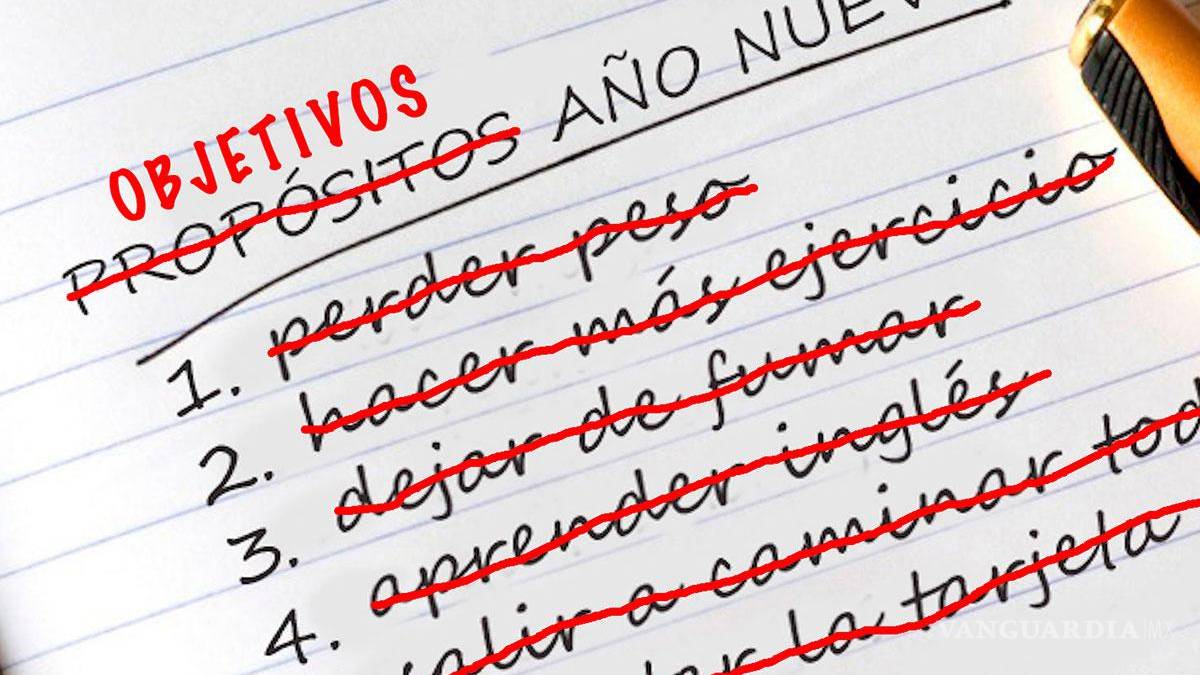 OBJETIVOS
PROPÓSITOS AÑO
1. perder peso
2. hacer más ejercicio
3. dejar de fumar
4. aprender inglés
salir a caminar
la tarjeta
VANGUARDIA|MX